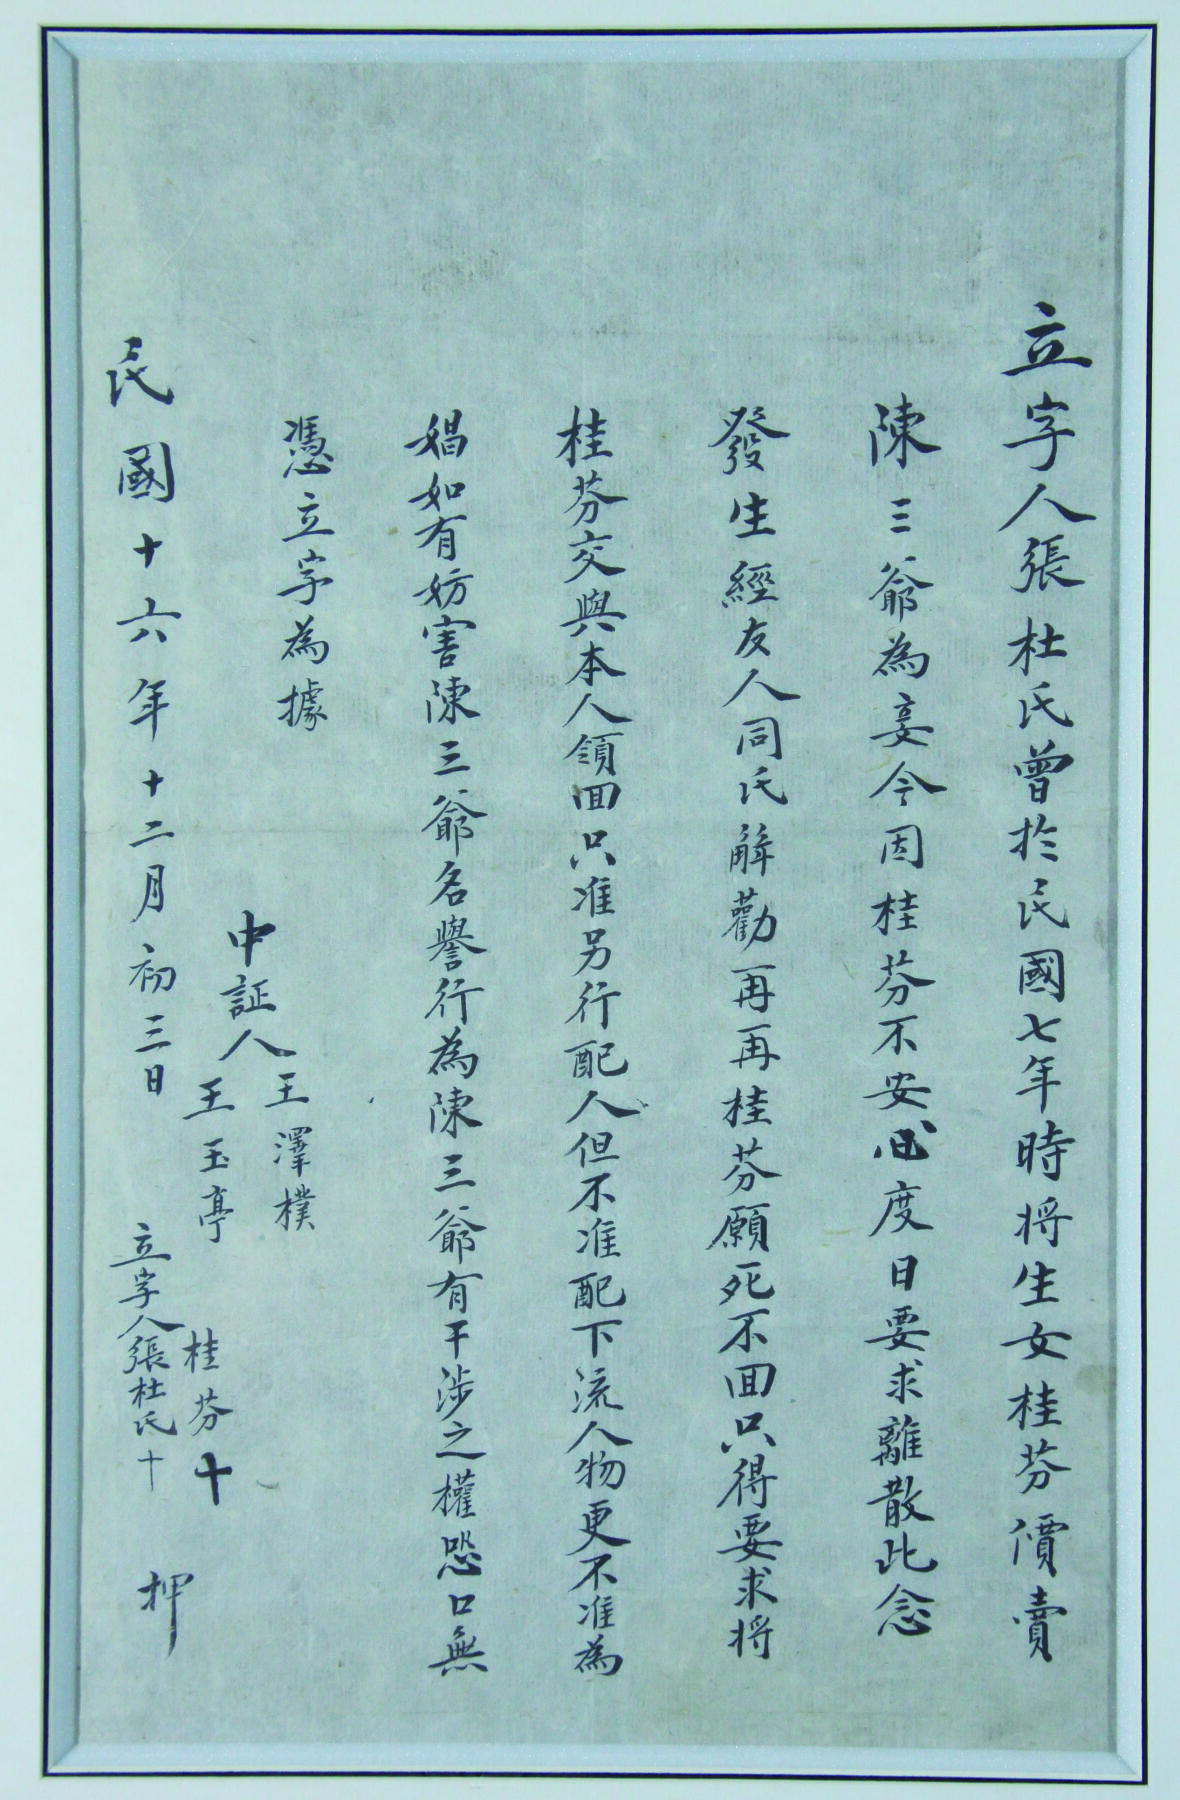 立字人張杜氏曾於民國七年時将生女桂芬價賣
陳三爺為妾今因桂芬不安心度日要求離散此念
發生經友人同氏解勸再再桂芬願死不囬只得要求将
桂芬交與本人領囬只准另行配人但不准配下流人物更不准為
娼如有妨害陳三爺名譽行為陳三爺有干涉之權恐口無
憑立字為據
中証人王澤樸
王玉亭
桂芬十
民國十六年十二月初三日
立字人張杜氏十 押